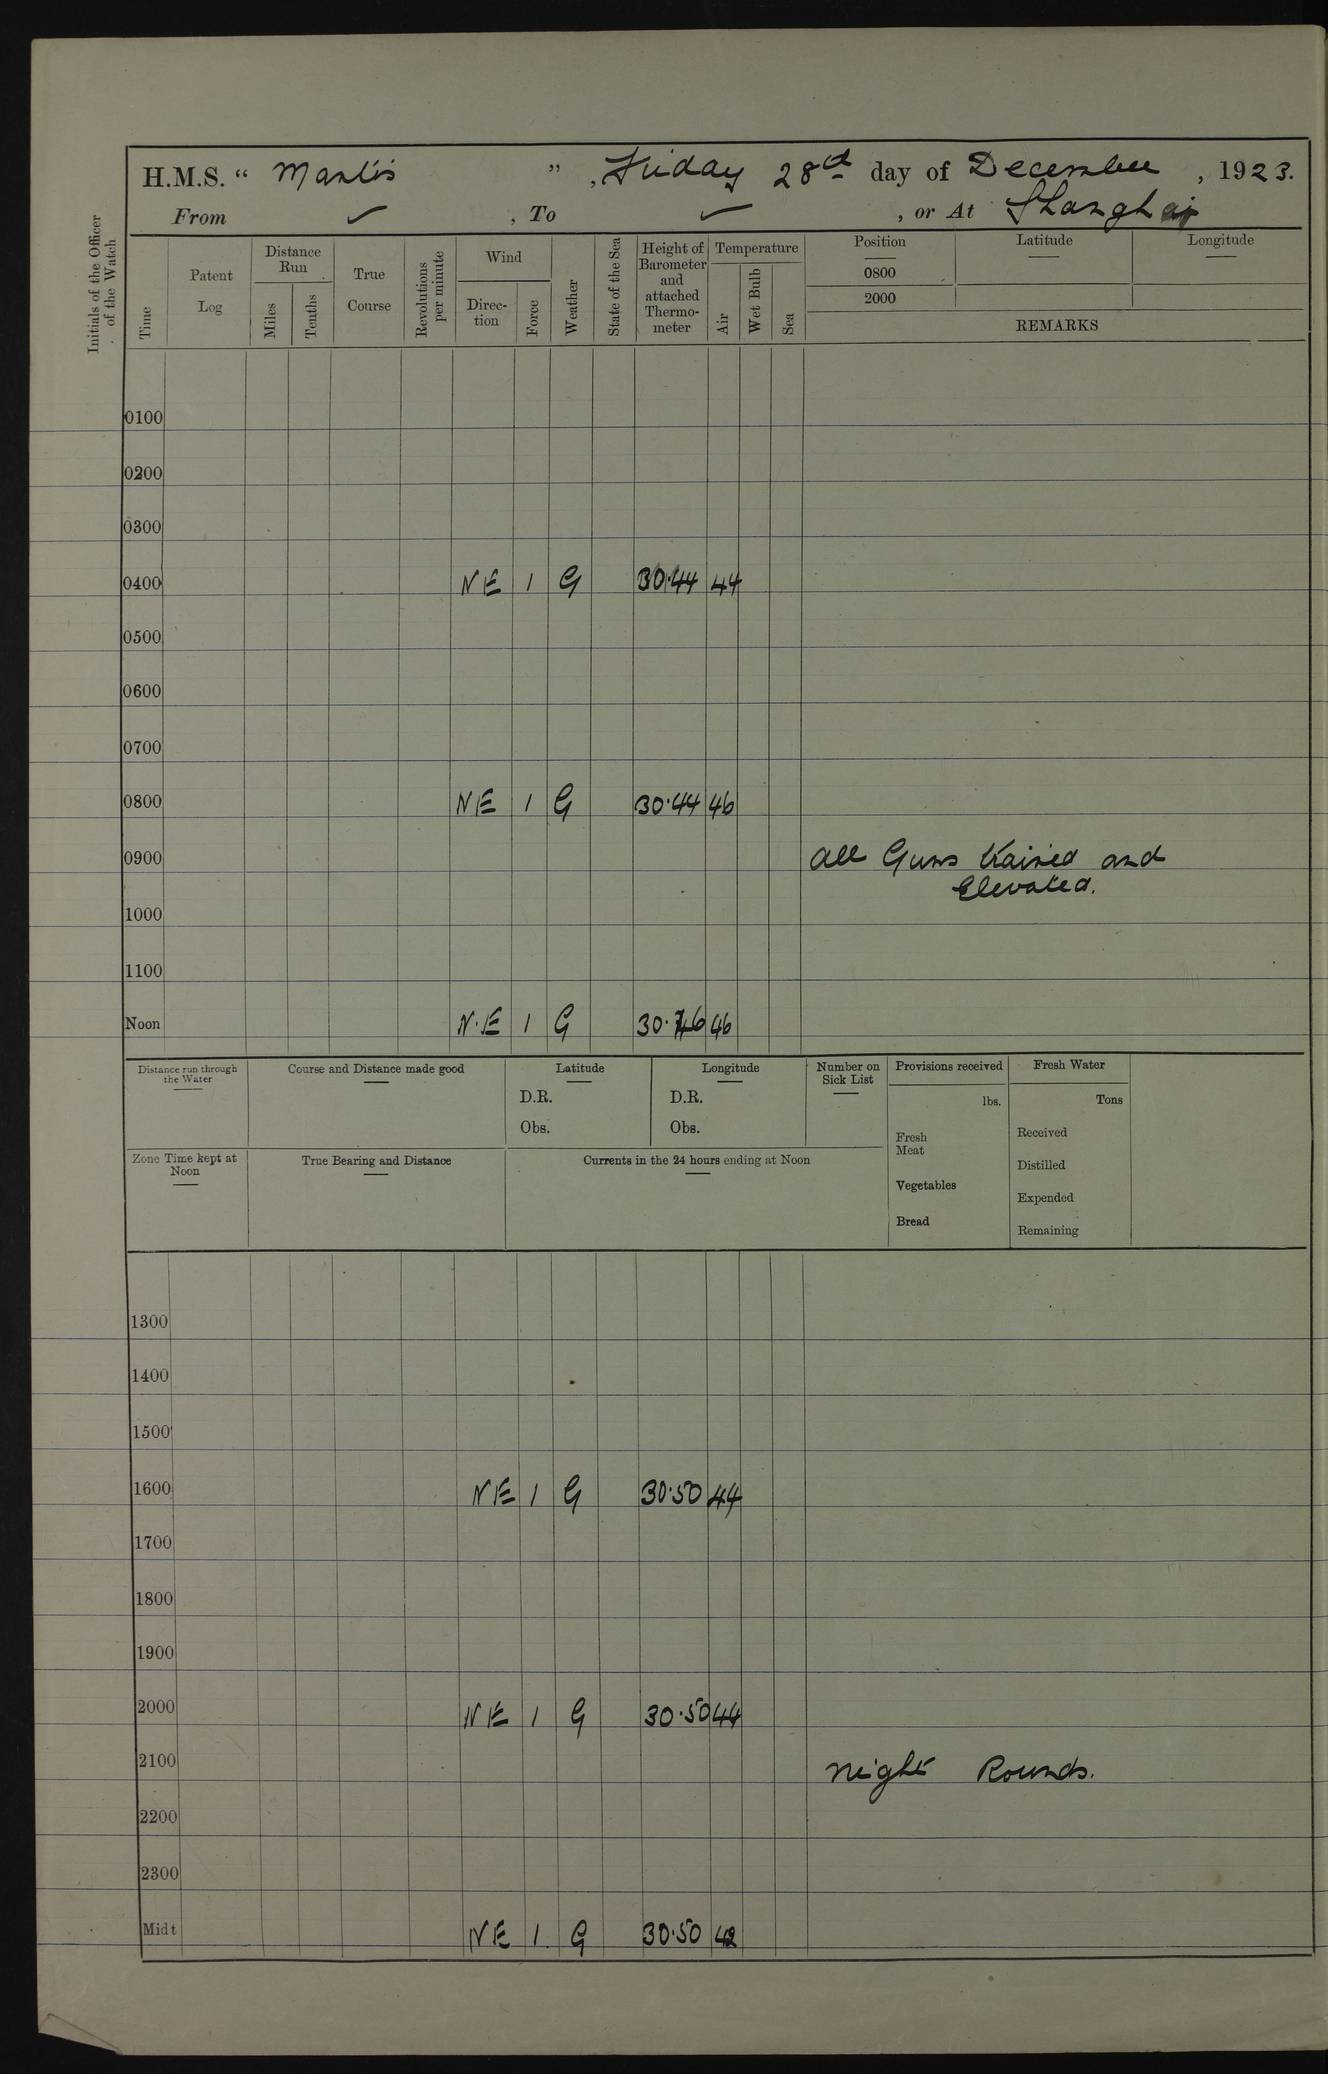 H.M.S. “ Mantis ” , Friday 28th day of December , 1923.
From ✓ , To ✓ , or At Shanghai
Initials of the Officer
of the Watch
Time
Patent
Log
Distance
Run
Miles
Tenths
True
Course
Revolutions
per minute
Wind
Direc-
tion
Force
Weather
State of the Sea
Height of
Barometer
and
attached
Thermo-
meter
Temperature
Air
Wet Bulb
Sea
Position
0800
2000
Latitude
Longitude
REMARKS
0100
0200
0300
0400 NE 1 G 30.44 44
0500
0600
0700
0800 NE 1 G 30.44 46
0900 All Guns trained and
Elevated.
1000
1100
Noon N.E 1 G 30.46 46
Distance run through
the Water
Course and Distance made good
Latitude
D.R.
Obs.
Longitude
D.R.
Obs.
Number on
Sick List
Provisions received
lbs.
Fresh
Meat
Vegetables
Bread
Fresh Water
Tons
Received
Distilled
Expended
Remaining
Zone Time kept at
Noon
True Bearing and Distance
Currents in the 24 hours ending at Noon
1300
1400
1500
1600 NE 1 G 30.50 44
1700
1800
1900
2000 NE 1 G 30.50 44
2100 Night Rounds.
2200
2300
Midt NE 1 G 30.50 42